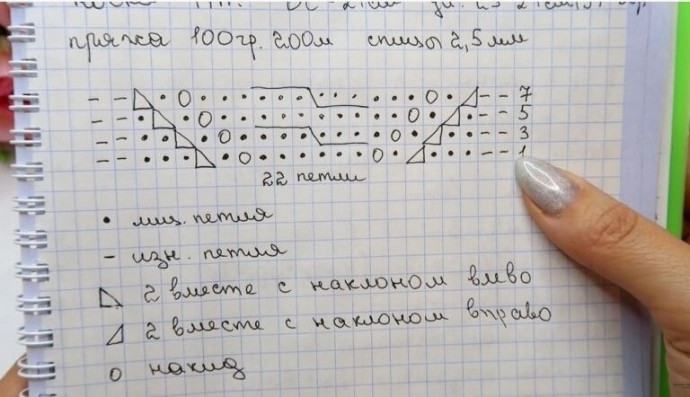 пряжа 100гр. 200м спицы 2,5мм
7
5
3
1
22 петли
• лиц. петля
– изн. петля
2 вместе с наклоном влево
2 вместе с наклоном вправо
O накид